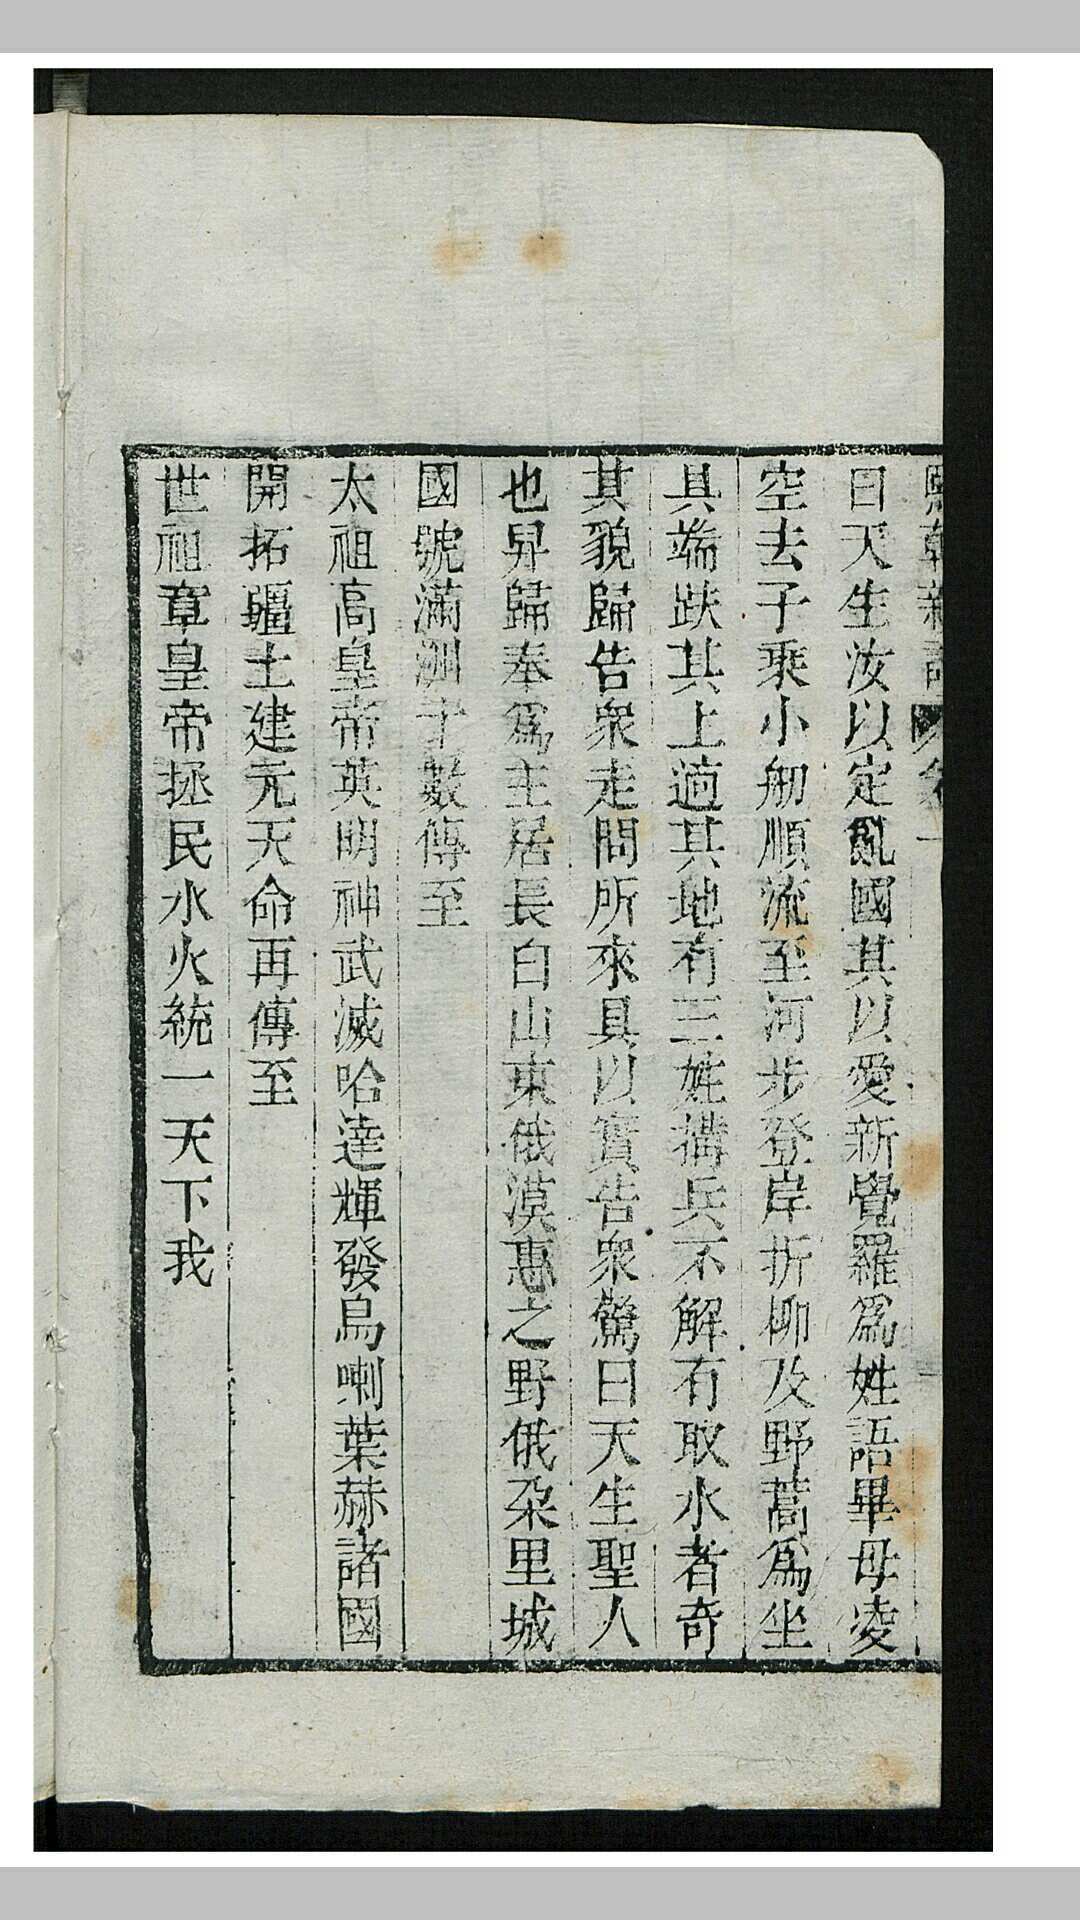 熙朝新語 卷一 一
曰天生汝以定亂國其以愛新覺羅爲姓語畢母凌
空去子乘小舠順流至河步登岸折柳及野蒿爲坐
具端趺其上適其地有三姓搆兵不解有取水者奇
其貌歸告衆走問所來具以實告衆驚曰天生聖人
也舁歸奉爲主居長白山東俄漠惠之野俄朶里城
國號滿洲十數傳至
太祖高皇帝英明神武滅哈達輝發烏喇葉赫諸國
開拓疆土建元天命再傳至
世祖章皇帝拯民水火統一天下我